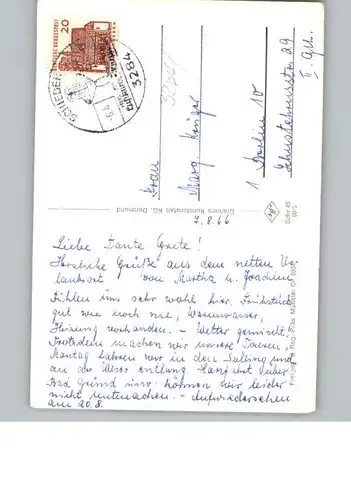 DEUTSCHE BUNDESPOST
20
SCHIEDER
3284
Frau
Marg. Krüger
1 Berlin 10
II. Gth.
Cramers Kunstanstalt KG., Dortmund
7.8.66
Liebe Tante Grete!
Herzliche Grüße aus dem netten Ur-
laubsort von Martha u. Joachim.
Fühlen uns sehr wohl hier. Frühstück
gut wie noch nie, Warmwasser,
Heizung vorhanden. - Wetter gemischt.
Trotzdem machen wir unsere Touren -
Montag fahren wir in den Solling und
an der Weser entlang. Harzfahrt über
Bad Grund usw. können wir leider
nicht unternehmen. - Aufwiedersehen
am 20.8.